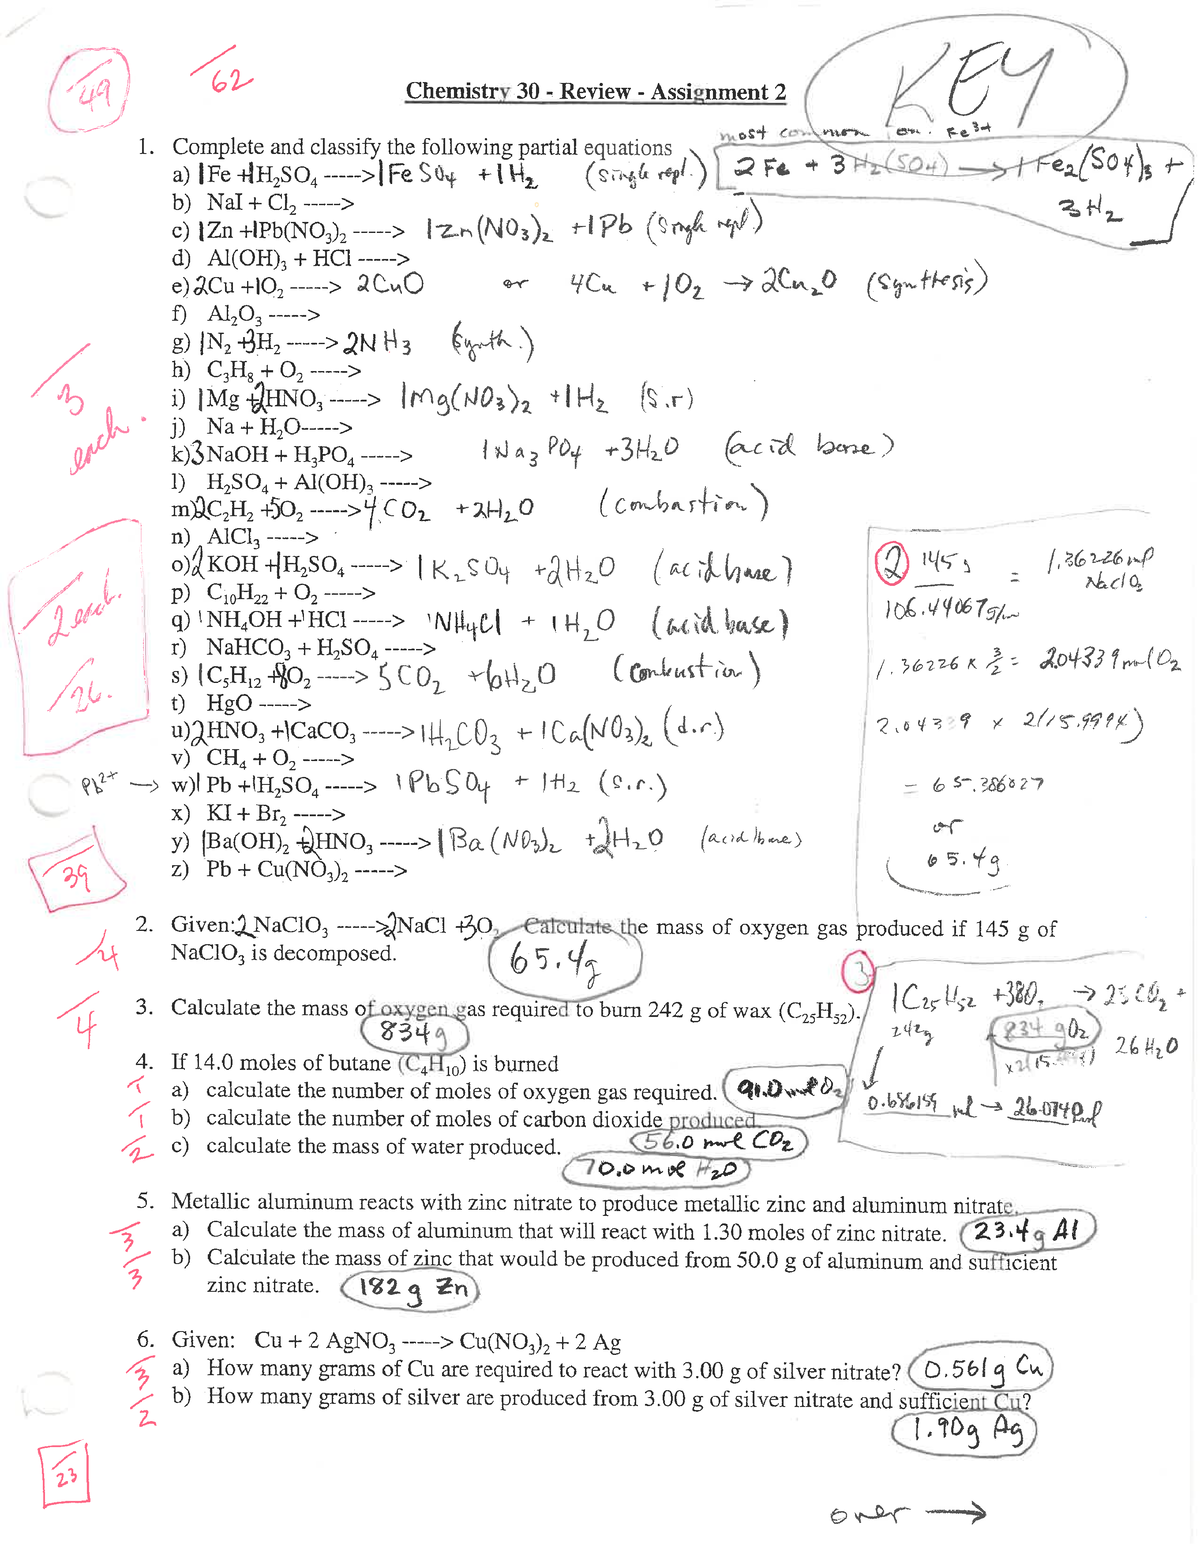 49
62
KEY
Chemistry 30 - Review - Assignment 2
most common ion. Fe³⁺
1. Complete and classify the following partial equations
2 Fe + 3 H₂(SO₄) → 1 Fe₂(SO₄)₃ + 3H₂
a) 1Fe + 1H₂SO₄ -----> 1FeSO₄ + 1H₂ (single repl.)
b) NaI + Cl₂ ----->
c) 1Zn +1Pb(NO₃)₂ -----> 1Zn(NO₃)₂ +1Pb (single repl)
d) Al(OH)₃ + HCl ----->
e) 2Cu +1O₂ -----> 2CuO or 4Cu + 1O₂ → 2Cu₂O (Synthesis)
f) Al₂O₃ ----->
g) 1N₂ +3H₂ -----> 2NH₃ (synth.)
h) C₃H₈ + O₂ ----->
3 each.
i) 1Mg +2HNO₃ -----> 1Mg(NO₃)₂ +1H₂ (s.r)
j) Na + H₂O----->
k) 3NaOH + H₃PO₄ -----> 1Na₃PO₄ +3H₂O (acid base)
l) H₂SO₄ + Al(OH)₃ ----->
m) 2C₂H₂ +5O₂ -----> 4CO₂ +2H₂O (combustion)
n) AlCl₃ ----->
o) 2KOH +1H₂SO₄ -----> 1K₂SO₄ +2H₂O (acid base)
p) C₁₀H₂₂ + O₂ ----->
2 each.
q) 1NH₄OH +1HCl -----> 1NH₄Cl + 1H₂O (acid base)
r) NaHCO₃ + H₂SO₄ ----->
s) 1C₅H₁₂ +8O₂ -----> 5CO₂ +6H₂O (combustion)
26.
t) HgO ----->
u) 2HNO₃ +1CaCO₃ -----> 1H₂CO₃ + 1Ca(NO₃)₂ (d.r.)
v) CH₄ + O₂ ----->
Pb²⁺ → w) 1Pb +1H₂SO₄ -----> 1PbSO₄ + 1H₂ (s.r.)
x) KI + Br₂ ----->
y) 1Ba(OH)₂ +2HNO₃ -----> 1Ba(NO₃)₂ +2H₂O (acid base)
z) Pb + Cu(NO₃)₂ ----->
39
2 145g = 1.36226 mol NaClO₃
106.44067g/m
1.36226 x 3/2 = 2.04339 mol O₂
2.04339 x 2(15.9994)
= 65.386027
or
65.4g
2. Given: 2 NaClO₃ -----> 2NaCl +3O₂ Calculate the mass of oxygen gas produced if 145 g of
4
NaClO₃ is decomposed.
65.4g
3. Calculate the mass of oxygen gas required to burn 242 g of wax (C₂₅H₅₂).
4
834g
3 1C₂₅H₅₂ +38O₂ → 25CO₂ + 26H₂O
242g 834 gO₂
0.686159 mol →
4. If 14.0 moles of butane (C₄H₁₀) is burned
1 a) calculate the number of moles of oxygen gas required. 91.0 mol O₂
1 b) calculate the number of moles of carbon dioxide produced.
56.0 mol CO₂
2 c) calculate the mass of water produced.
70.0 mol H₂O
5. Metallic aluminum reacts with zinc nitrate to produce metallic zinc and aluminum nitrate.
3 a) Calculate the mass of aluminum that will react with 1.30 moles of zinc nitrate. 23.4g Al
3 b) Calculate the mass of zinc that would be produced from 50.0 g of aluminum and sufficient
zinc nitrate. 182 g Zn
6. Given: Cu + 2 AgNO₃ -----> Cu(NO₃)₂ + 2 Ag
3 a) How many grams of Cu are required to react with 3.00 g of silver nitrate? 0.561g Cu
2 b) How many grams of silver are produced from 3.00 g of silver nitrate and sufficient Cu?
1.90g Ag
23
over →